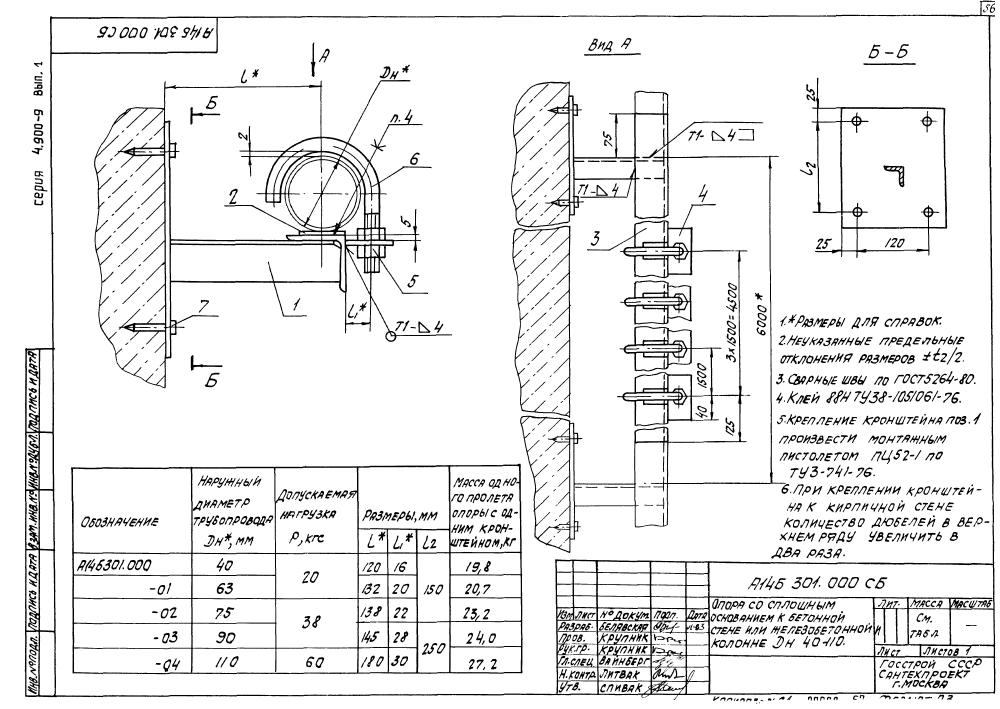 56
А14Б 301. 000 СБ
серия 4.900-9 вып. 1
А
L*
Dн*
п. 4
Б
2
6
2
5
5
1
L1*
7
Т1-◺ 4
Б
Вид А
75
Т1- ◺ 4
Т1-◺ 4
4
3
3×1500=4500
6000*
1500
40
125
Б-Б
25
l2
25
120
1.*Размеры для справок.
2.Неуказанные предельные
отклонения размеров ±t2/2.
3. Сварные швы по ГОСТ 5264-80.
4. Клей 88Н ТУ38-1051061-76.
5.Крепление кронштейна поз. 1
произвести монтажным
пистолетом ПЦ52-1 по
ТУ3-741-76.
6.При креплении кронштей-
на к кирпичной стене
количество дюбелей в вер-
хнем ряду увеличить в
два раза.
Обозначение
Наружный диаметр трубопровода Dн*, мм
Допускаемая нагрузка P, кгс
Размеры, мм
L* L1* l2
Масса одного пролета опоры с одним кронштейном, кг
А14Б301.000 40 20 120 16 150 19,8
-01 63 132 20 20,7
-02 75 38 138 22 23,2
-03 90 145 28 250 24,0
-04 110 60 180 30 27,2
Инв. № подл. Подпись и дата Взам. инв. № Инв. № дубл. Подпись и дата
А14Б 301. 000 СБ
Изм. Лист № докум. Подп. Дата
Разраб. Белявская
Пров. Крупник
Рук.гр. Крупник
Гл.спец. Вайнберг
Н.контр. Литвак
Утв. Спивак
Опора со сплошным
основанием к бетонной
стене или железобетонной
колонне Dн 40-110.
Лит. Масса Масштаб
И См. табл. —
Лист Листов 1
Госстрой СССР
Сантехпроект
г. Москва